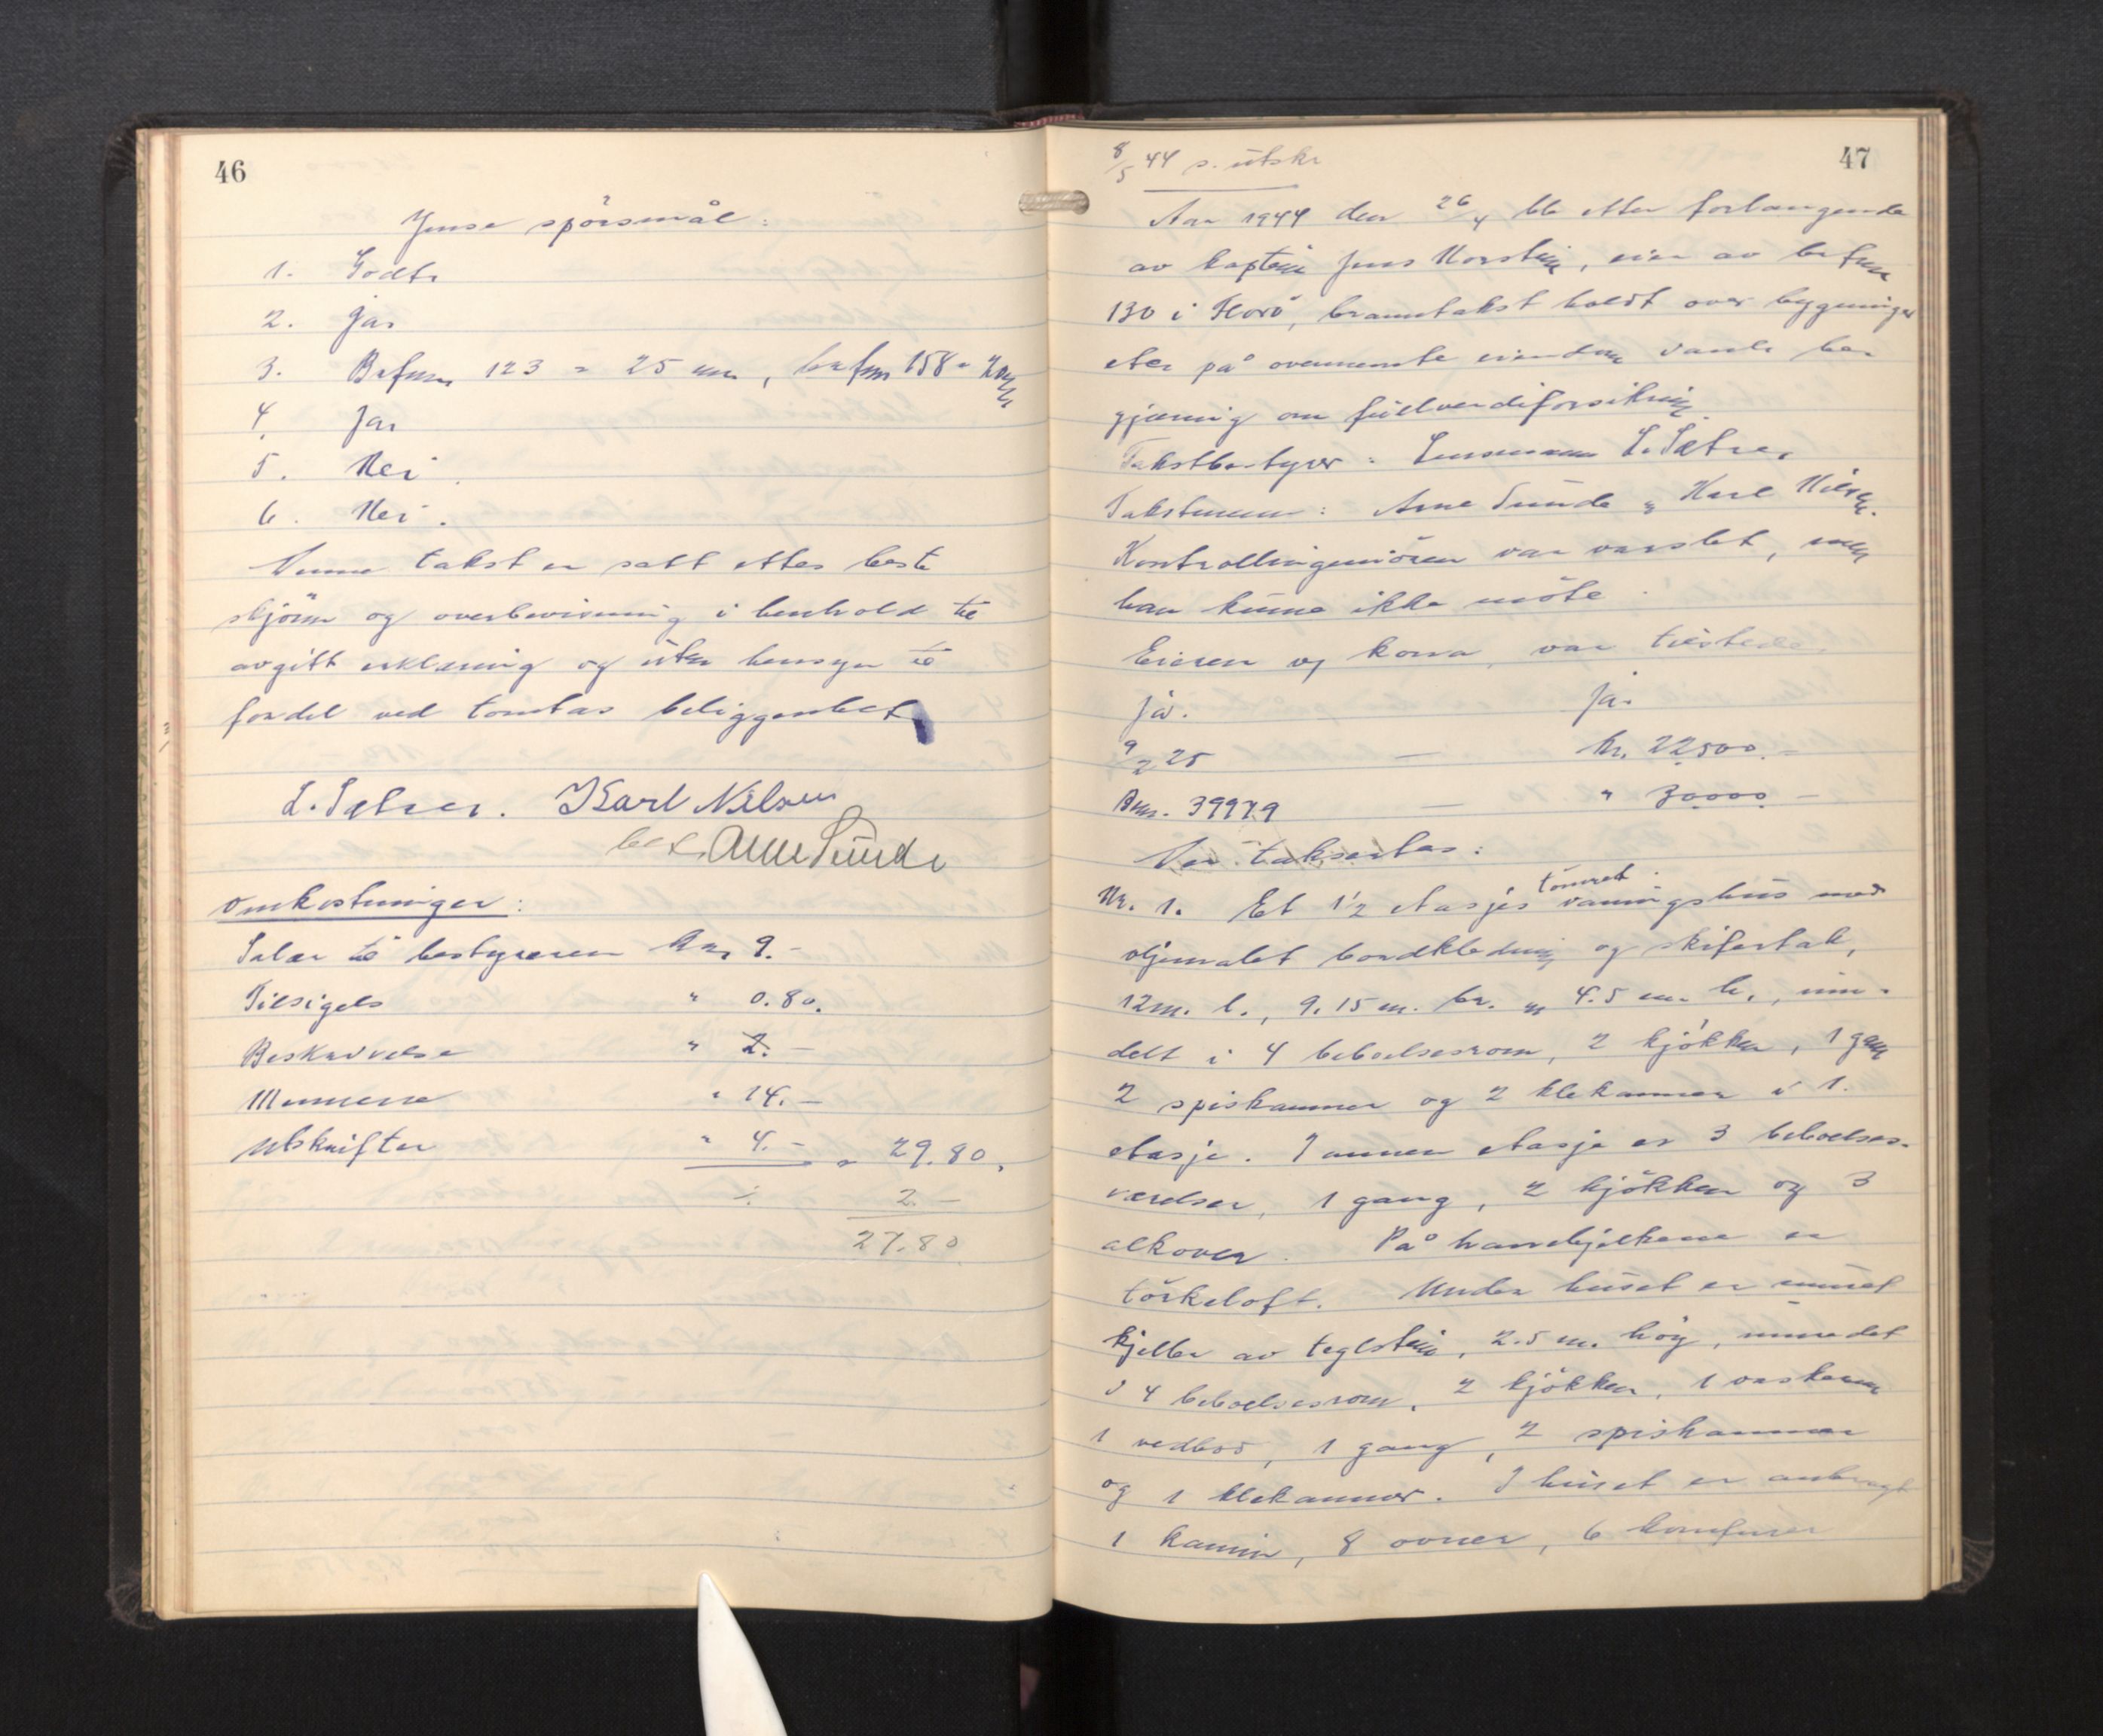 46
Ymse spörsmål:
1. Godt.
2. Ja.
3. Brfnr. 123 = 25 m., brfnr 158 =
4. Ja.
5. Nei.
6. Nei.
Denne takst er satt etter beste
skjönn og overbevisning i henhold til
avgitt erklæring og uten hensyn til
fordel ved tomtas beliggenhet
L. Sætren. Karl Nilsen
Arne Sunde
Omkostninger:
Salær til bestyreren kr. 9.-
Tilsigels " 0.80.
Beskrivelse " 2.-
Mennene " 14.-
Utskrifter " 4.- = 29.80.
÷ 2.-
27.80
47
8/5 44 s. utskr
Aar 1944 den 26/4 ble etter forlangende
av kaptein Jens, eier av brfnr
130 i Florö, branntakst holdt over bygninger
eter på ovennemte eiendom samt be-
gjæring om fullverdiforsikring.
Takstbestyrer: Lensmann L. Sætren.
Takstmenn: Arne Sunde og Karl Nilsen.
Kontrollingeniören var varslet, men
han kunne ikke möte.
Eieren og kona var tilstede.
Ja. Ja.
9/2 25 — kr. 22500.-
Bnr. 39979 — " 30000.-
Der takseres:
Nr. 1. Et 1½ etasjes tömret våningshus med
oljemalet bordkledning og skifertak,
12 m. l., 9.15 m. br. og 4.5 m. h., inn-
delt i 4 beboelsesrom, 2 kjökken, 1 gang
2 spiskammer og 2 klekammer i 1.
etasje. I annen etasje er 3 beboelses-
værelser, 1 gang, 2 kjökken og 3
alkover. På hanebjelkene er
törkeloft. Under huset er muret
kjeller av teglstein, 2.5 m. höy, innredet
i 4 beboelsesrom, 2 kjökken, 1 vaskerum
1 vedbod, 1 gang, 2 spiskammer
og 1 klekammer. I huset er anbragt
1 kamin, 8 ovner, 6 komfurer